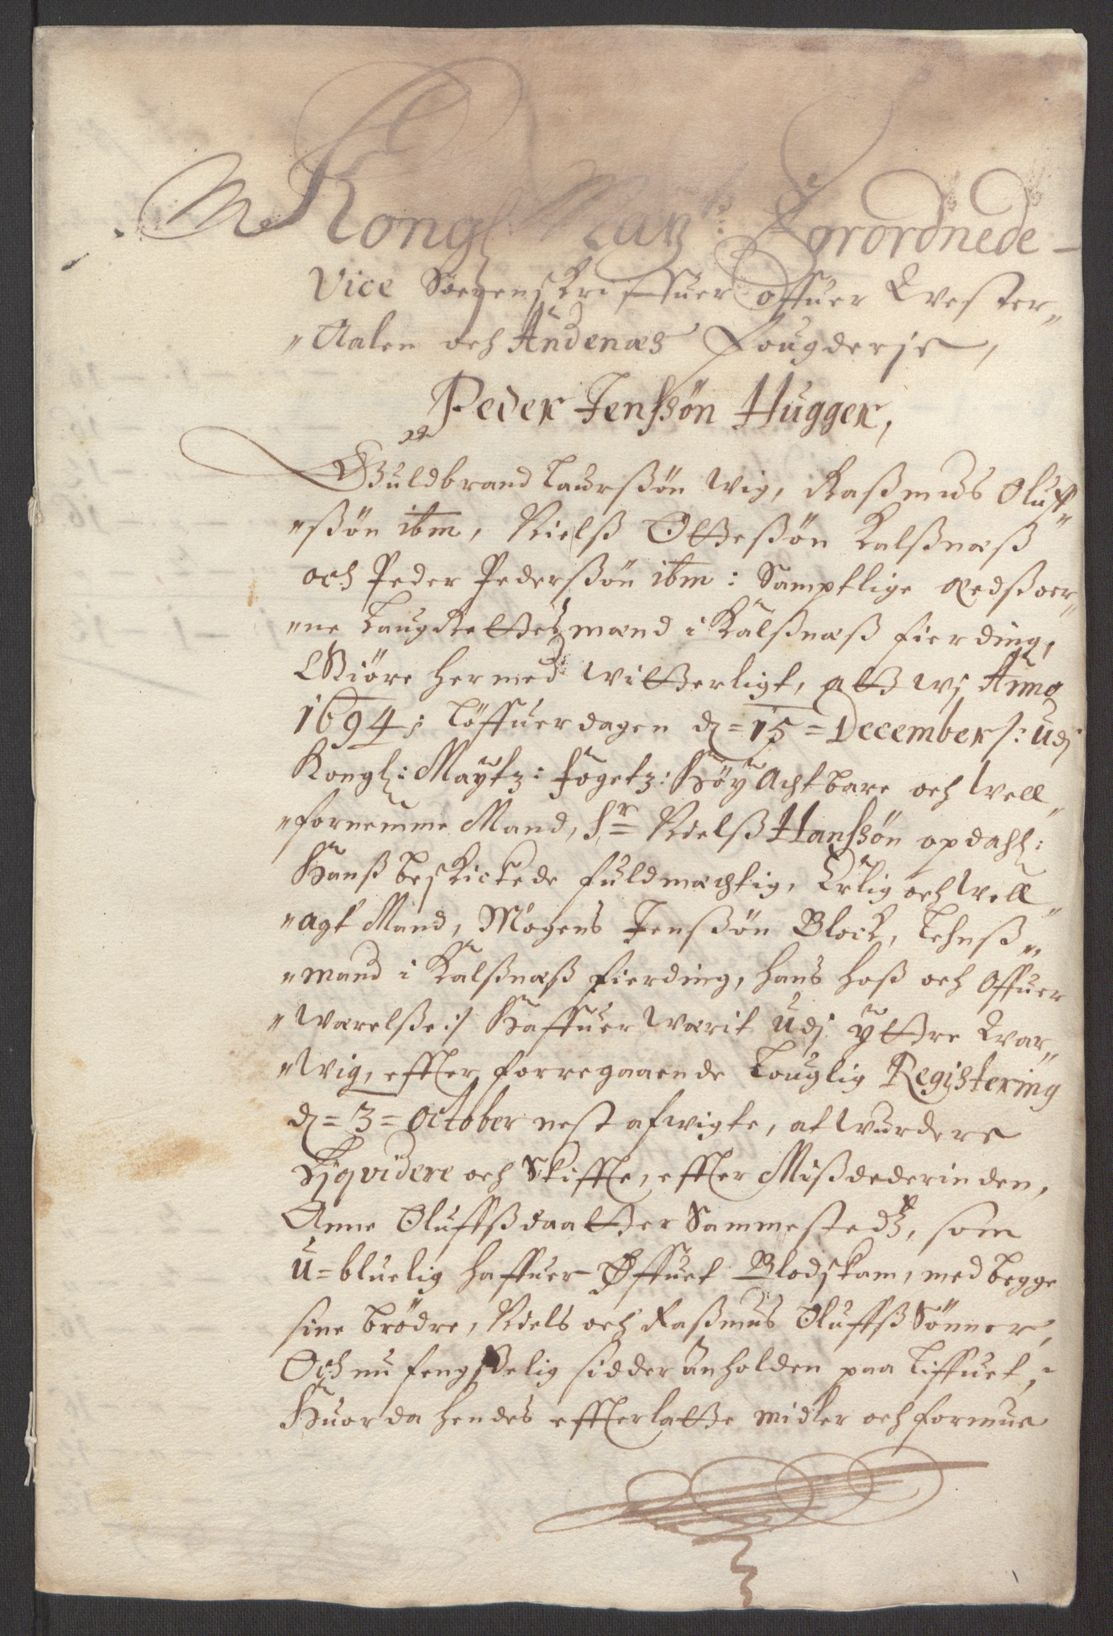 Kongl: Maytz: Forordnede
Vice Sorenskriffuer offuer Wester„
„Aalen och Andenæs Fougderie,
Peder Jenssøn Hugger,
Guldbrand Laursßøn Wig, Raßmus Oluf„
„sßøn ibm, Nielß Otteßøn Kalßnæß
och Peder Pederßøn ibm: Samptlige Edßoer„
„ne Laugrettesmænd i Kalßnæß fierding,
Giøre hermed vitterligt, att wj Anno
1694: Løffuerdagen d= 15= December /: Udj
Kongl: Maytz: Fogetz: Høy Acht bare och Well„
„fornemme Mand, Sr= Nielß Hanssøn opdahl:
Hanß beskickede fuldmæchtig, Ærlig och Well„
„agt Mand, Mogens Jenßøn Block, Lehnß„
„mand i Kalßnæß fierding, hans hoß och Offuer
„Wærelße:/ Haffuer Wærit Udj Yttre War„
„Wig, effter forregaaende Louglig Registering
d= 3= October nest afwigte, at Wurdere
Liqvidere och Skiffte, effter Mißdederinden,
Anne Oluffßdaatter Sammestedtz, som
U=bluelig haffuer Øffuet Blodskam, med begge
sine brødre, Niels och Raßmus Oluffß Sønner,
Och nu fengßelig sidder Anholden paa Liffuet,
Huor da hendes effterlatte midler och formue